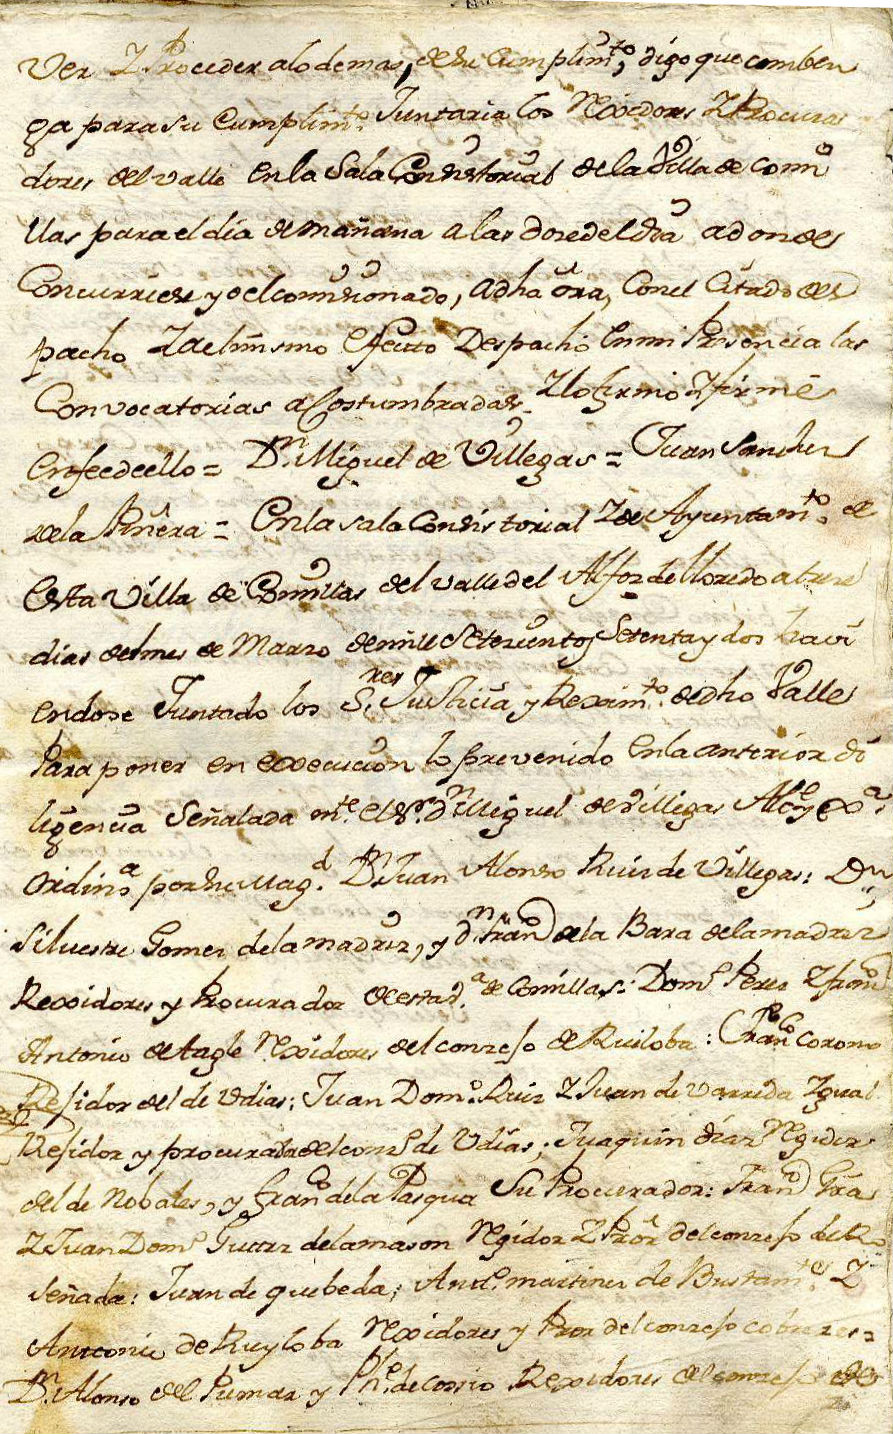 Ver Y Proceder alo demas, de su Cumplimto, digo que comben
ga para su Cumplimto. Juntaria los Rexidores Y Procura
dores del valle en la Sala Consistorial de la Villa de Comi
llas para el dia de mañana a las doze del dia adonde
Concurriese yo el comisionado, a dha ôra, Con el Citado des
pacho Y ael mismo Efecto Despachó en mi Presencia las
Convocatorias acostumbradas. Y lo firmó Y firmé
en fee de ello = Dn. Miguel de Villegas = Juan Sanchez
de la Piñera = En la sala Consistorial Y de Ayuntamto. de
Esta Villa de Comillas del valle del Alfoz de lloredo a treze
dias del mes de Marzo de mill Setezientos Setenta y dos havi
endose Juntado los Sres. Justicia y Reximto. de dho Valle
Para poner en execucion lo prevenido en la anterior di
ligencia Señalada mte. el Sr. dn Miguel de Villegas Alce y
Ordina por su Magd. Dn. Juan Alonso Ruiz de Villegas: Dn
Silvestre Gomez de la madriz, y dn. Franco de la Bara de la madriz
Rexidores y Procurador de esta va. de Comillas: Domo Perez Y franco
Antonio de Tagle Rexidores del conzejo de Ruiloba: Franco Corona
Residor del de Udias: Juan Domo. Ruiz Y Juan de Varreda Ygual
Residor y procurador del conzo de Udias; Juaquin diaz Regidor
del de Nobales, y Franco de la Pasqua Su Procurador: Franco Gra
Y Juan Domo Guttrz de la mason Regidor Y Pror del conzejo de Ru
señada: Juan de quebeda; Anto. martinez de Bustamte Y
Antonio de Ruyloba Rexidores y Pror del conzejo cobrezes =
Dn. Alonso del Pumar y Pho. de Cossio Rexidores del conzejo de